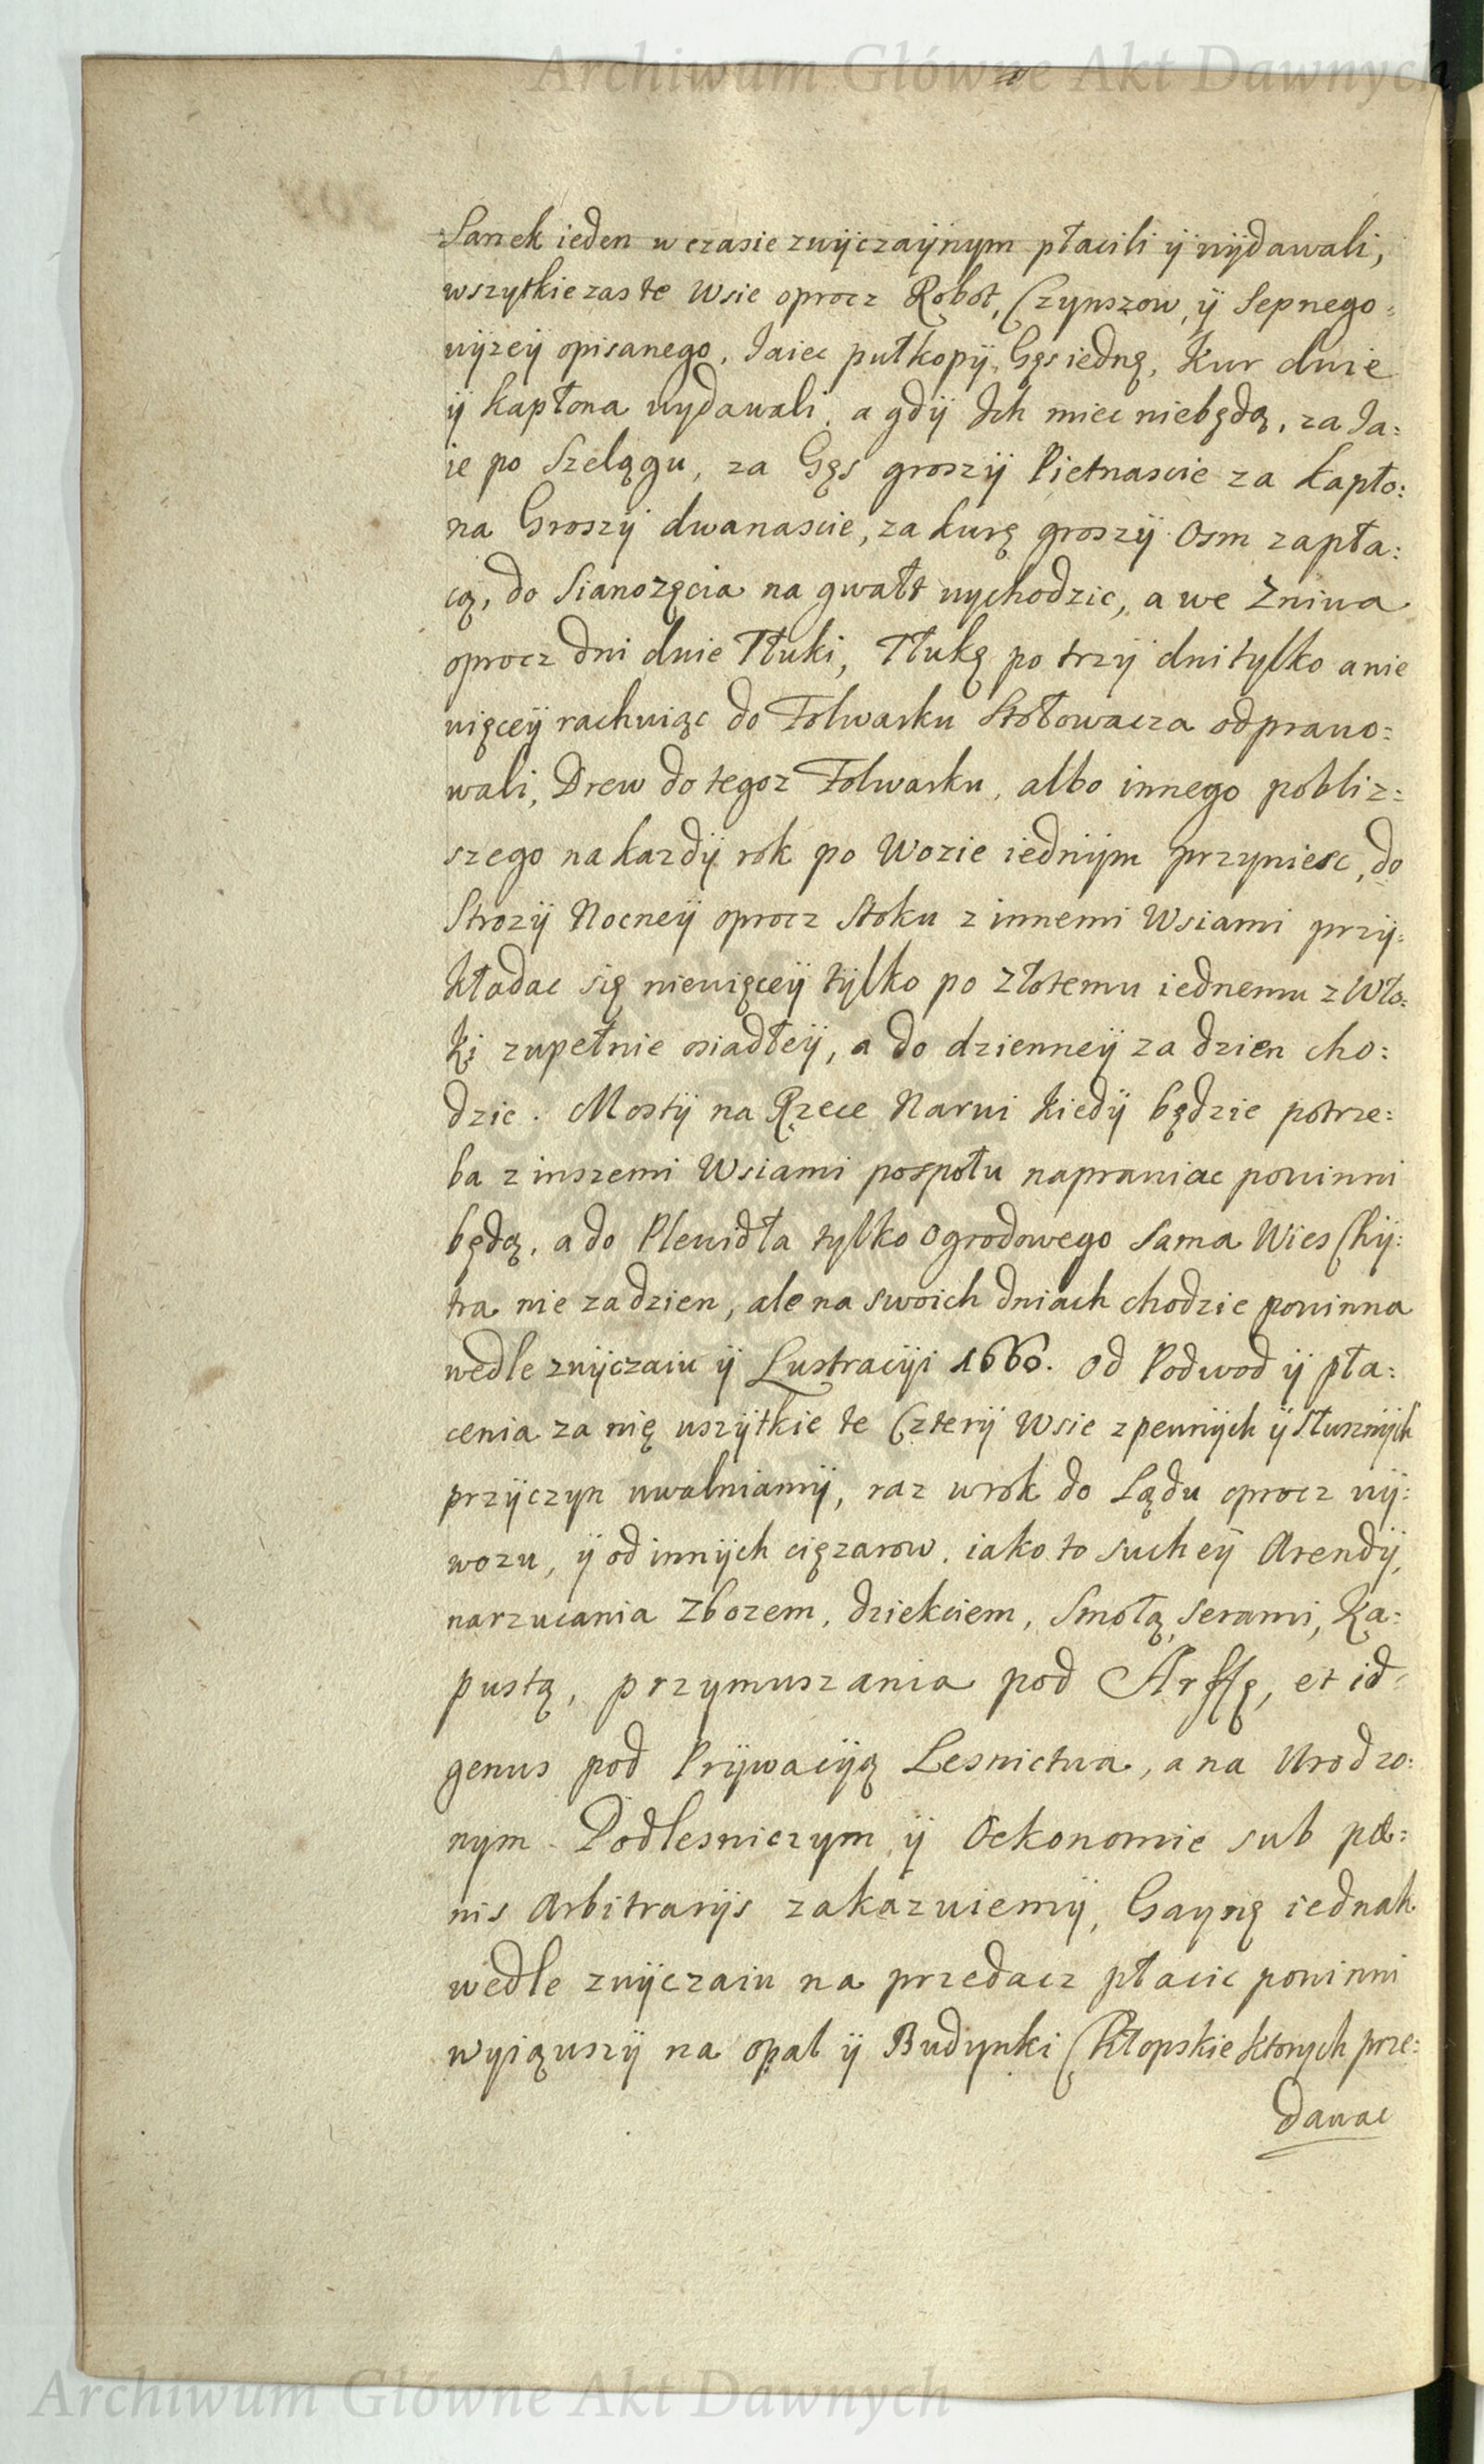 Archiwum Główne Akt Dawnych
Sanek ieden w czasie zwyczaÿnym płacili ÿ wÿdawali,
wszytkie zas te Wsie oprocz Robot, Czynszow, ÿ Sepnego
wÿzeÿ opisanego, Jaiec pułkopÿ, Gęs iednę, Kur dwie
ÿ Kapłona wydawali, a gdÿ Ich miec niebędą, za Ja:
ie po Szelągu, za Gęs groszÿ Pietnascie za Kapło:
na Groszÿ dwanascie, za kurę groszÿ Osm zapła:
cą, do Sianozęcia na gwałt wychodzic, a we Zniwa
oprocz dni dwie Tłuki, Tłukę po trzÿ dni tylko a nie
więceÿ rachuiąc do Folwarku Stołowacza odprawo:
wali, Drew do tegoz Folwarku, albo innego pobliz:
szego na kazdÿ rok po Wozie iednÿm przyniesc, do
Strozÿ Nocneÿ oprocz Stoku z innemi Wsiami przÿ:
kładac się niewięceÿ tÿlko po Złotemu iednemu z Wło:
ki zupełnie osiadłeÿ, a do dzienneÿ za dzien cho:
dzic. Mostÿ na Rzece Narwi kiedÿ będzie potrze:
ba z inszemi Wsiami pospołu naprawiac powinni
będą, a do Plewidła tylko Ogrodowego Sama Wies Chÿ:
tra nie za dzien, ale na swoich dniach chodzic powinna
wedle zwÿczaiu ÿ Lustracÿi 1660. Od Podwod ÿ pła:
cenia za nię wszÿtkie te Czterÿ Wsie z pewnÿch ÿ Słusznÿch
przÿczyn uwalniamÿ, raz w rok do Lądu oprocz wÿ:
wozu, ÿ od innÿch cięzarow, iako to sucheÿ Arendÿ,
narzucania Zbozem, dziekciem, Smołą, Serami, Ka:
pustą, przymuszania pod Arffę, et id
genus pod Prÿwacÿą Lesnictwa, a na Urodzo:
nym Podlesniczym ÿ Oekonomie sub pæ:
nis Arbitrarÿs zakazuiemÿ, Gaynę iednak
wedle zwÿczaiu na przedacz płacic powinni
wyiąwszÿ na opał ÿ Budynki Chłopskie ktorych prze:
dawac
Archiwum Główne Akt Dawnych